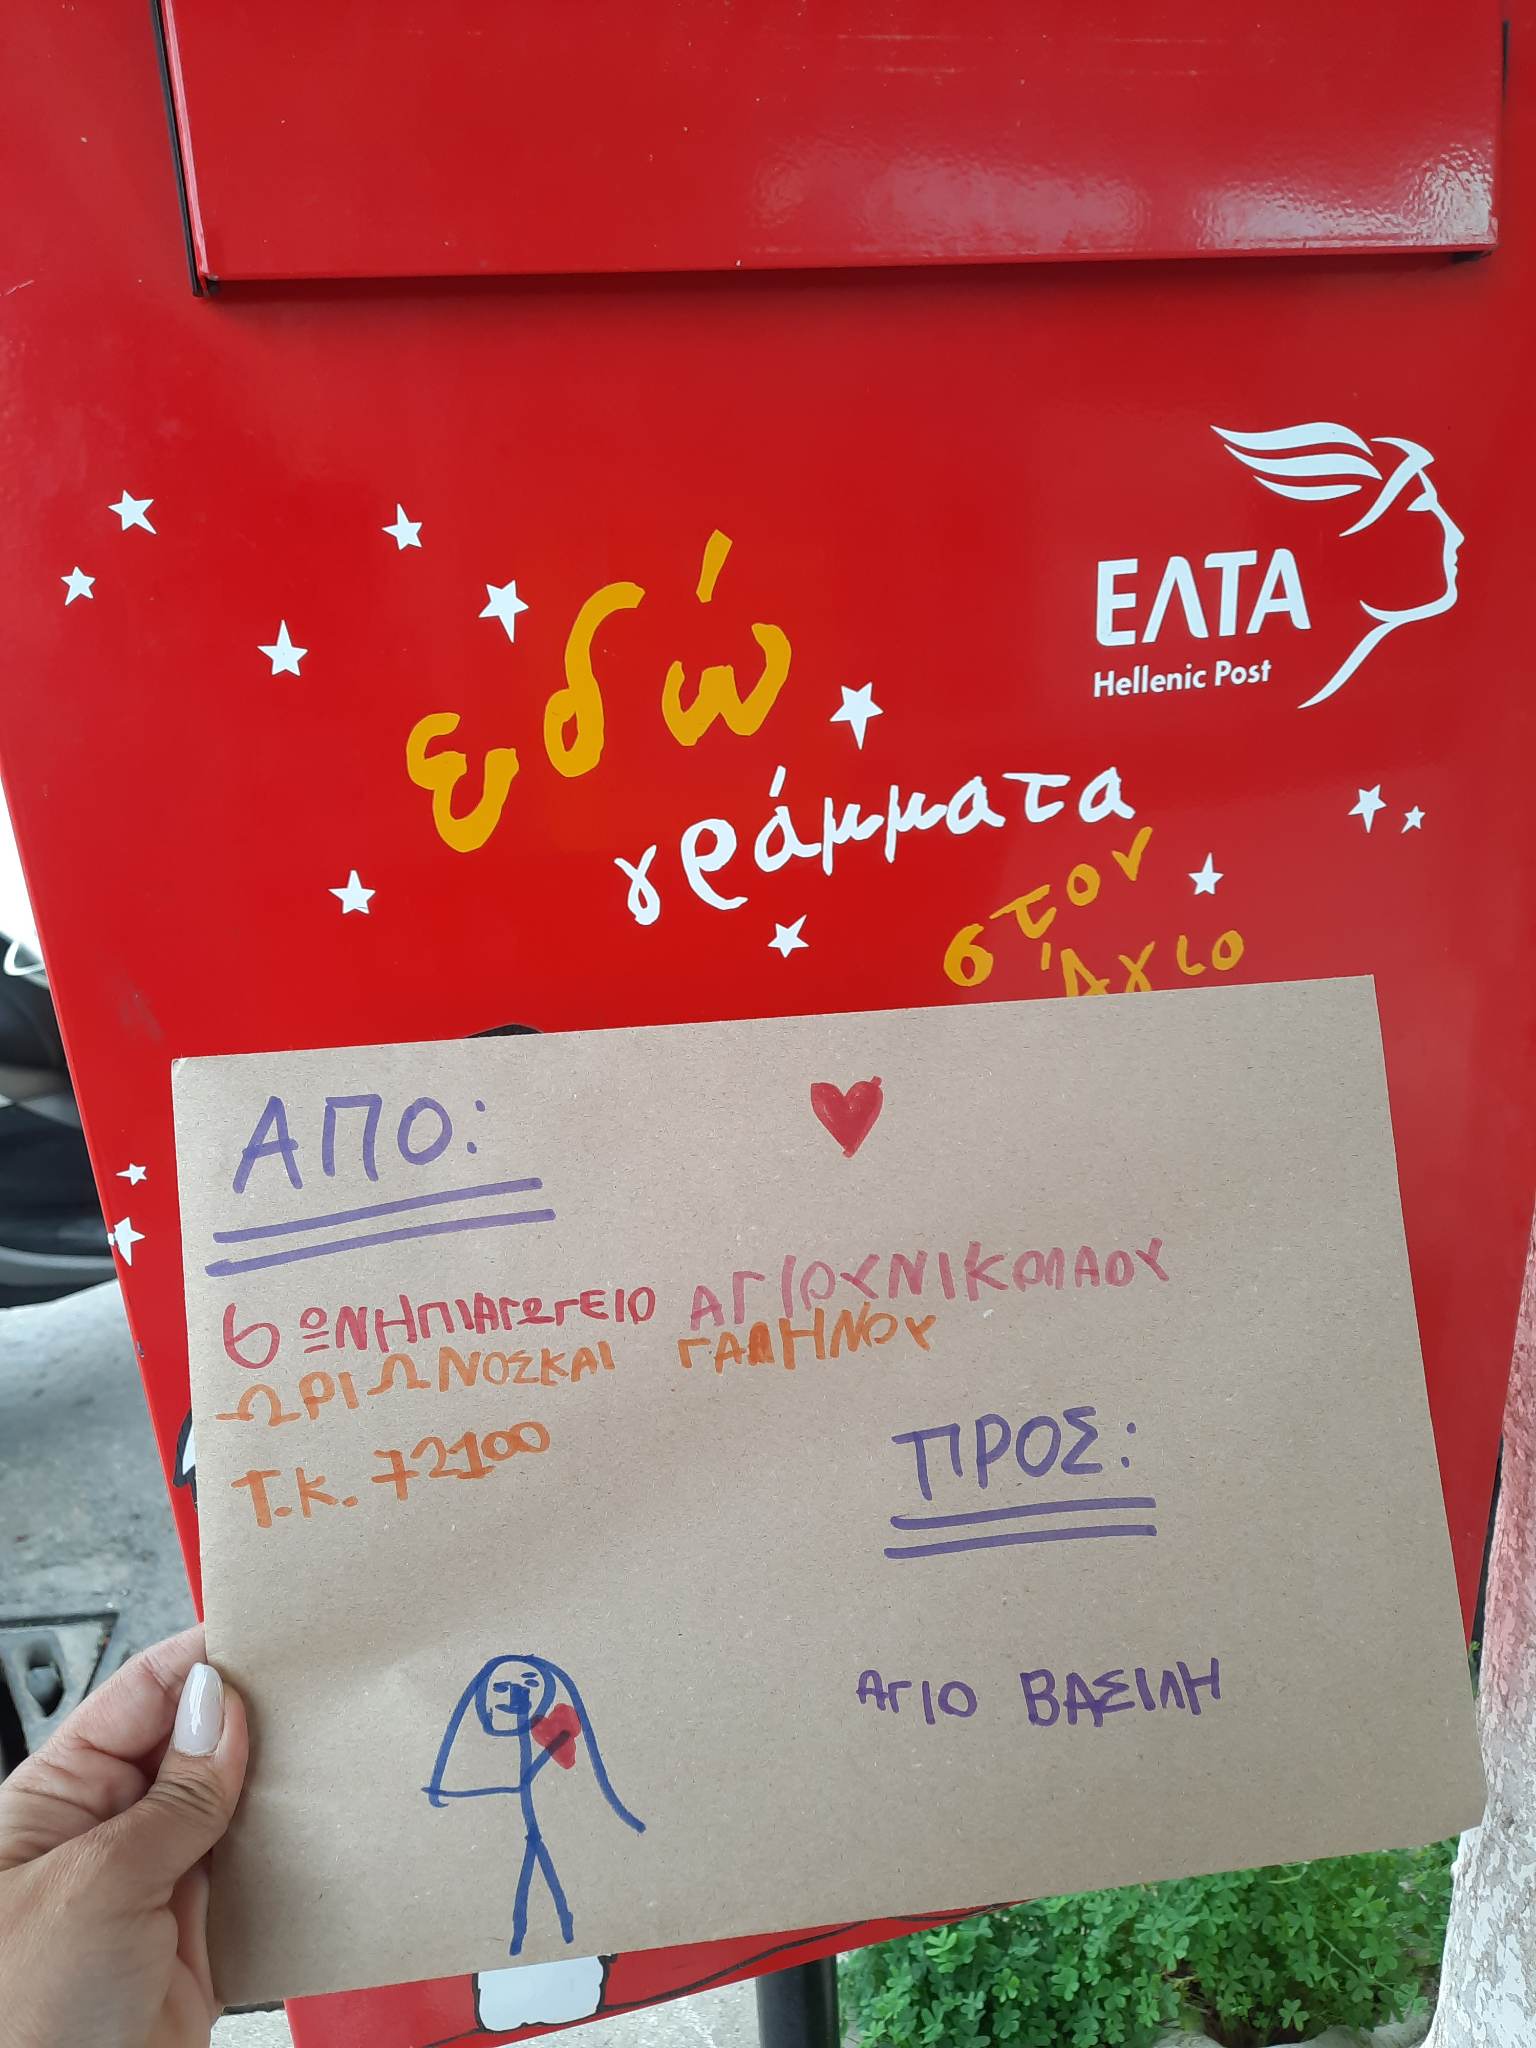 ΕΛΤΑ
Hellenic Post
εδώ
γράμματα
στον
Άγιο
ΑΠΟ:
6 ΩΝΗΠΙΑΓΩΓΕΙΟ ΑΓΙΟΥΝΙΚΟΛΑΟΥ
ΩΡΙΩΝΟΣΚΑΙ ΓΑΛΗΝΟΥ
Τ.Κ. 72100
ΠΡΟΣ:
ΑΓΙΟ ΒΑΣΙΛΗ